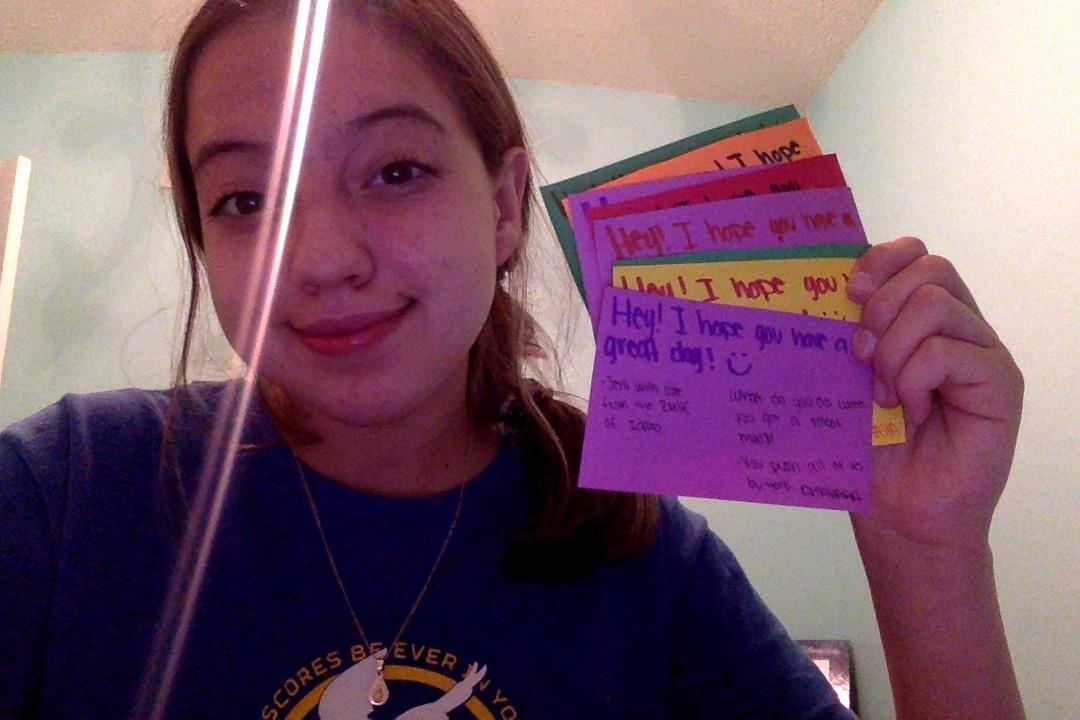 I hope
you
Hey! I hope you have a
Hey! I hope you
Hey! I hope you have a
great day!
-Sent with love
from the
of Idaho
What do you do when
you get a robot
mad?
-You push all of its
buttons. HAHAHAHA
SCORES BE EVER IN YO